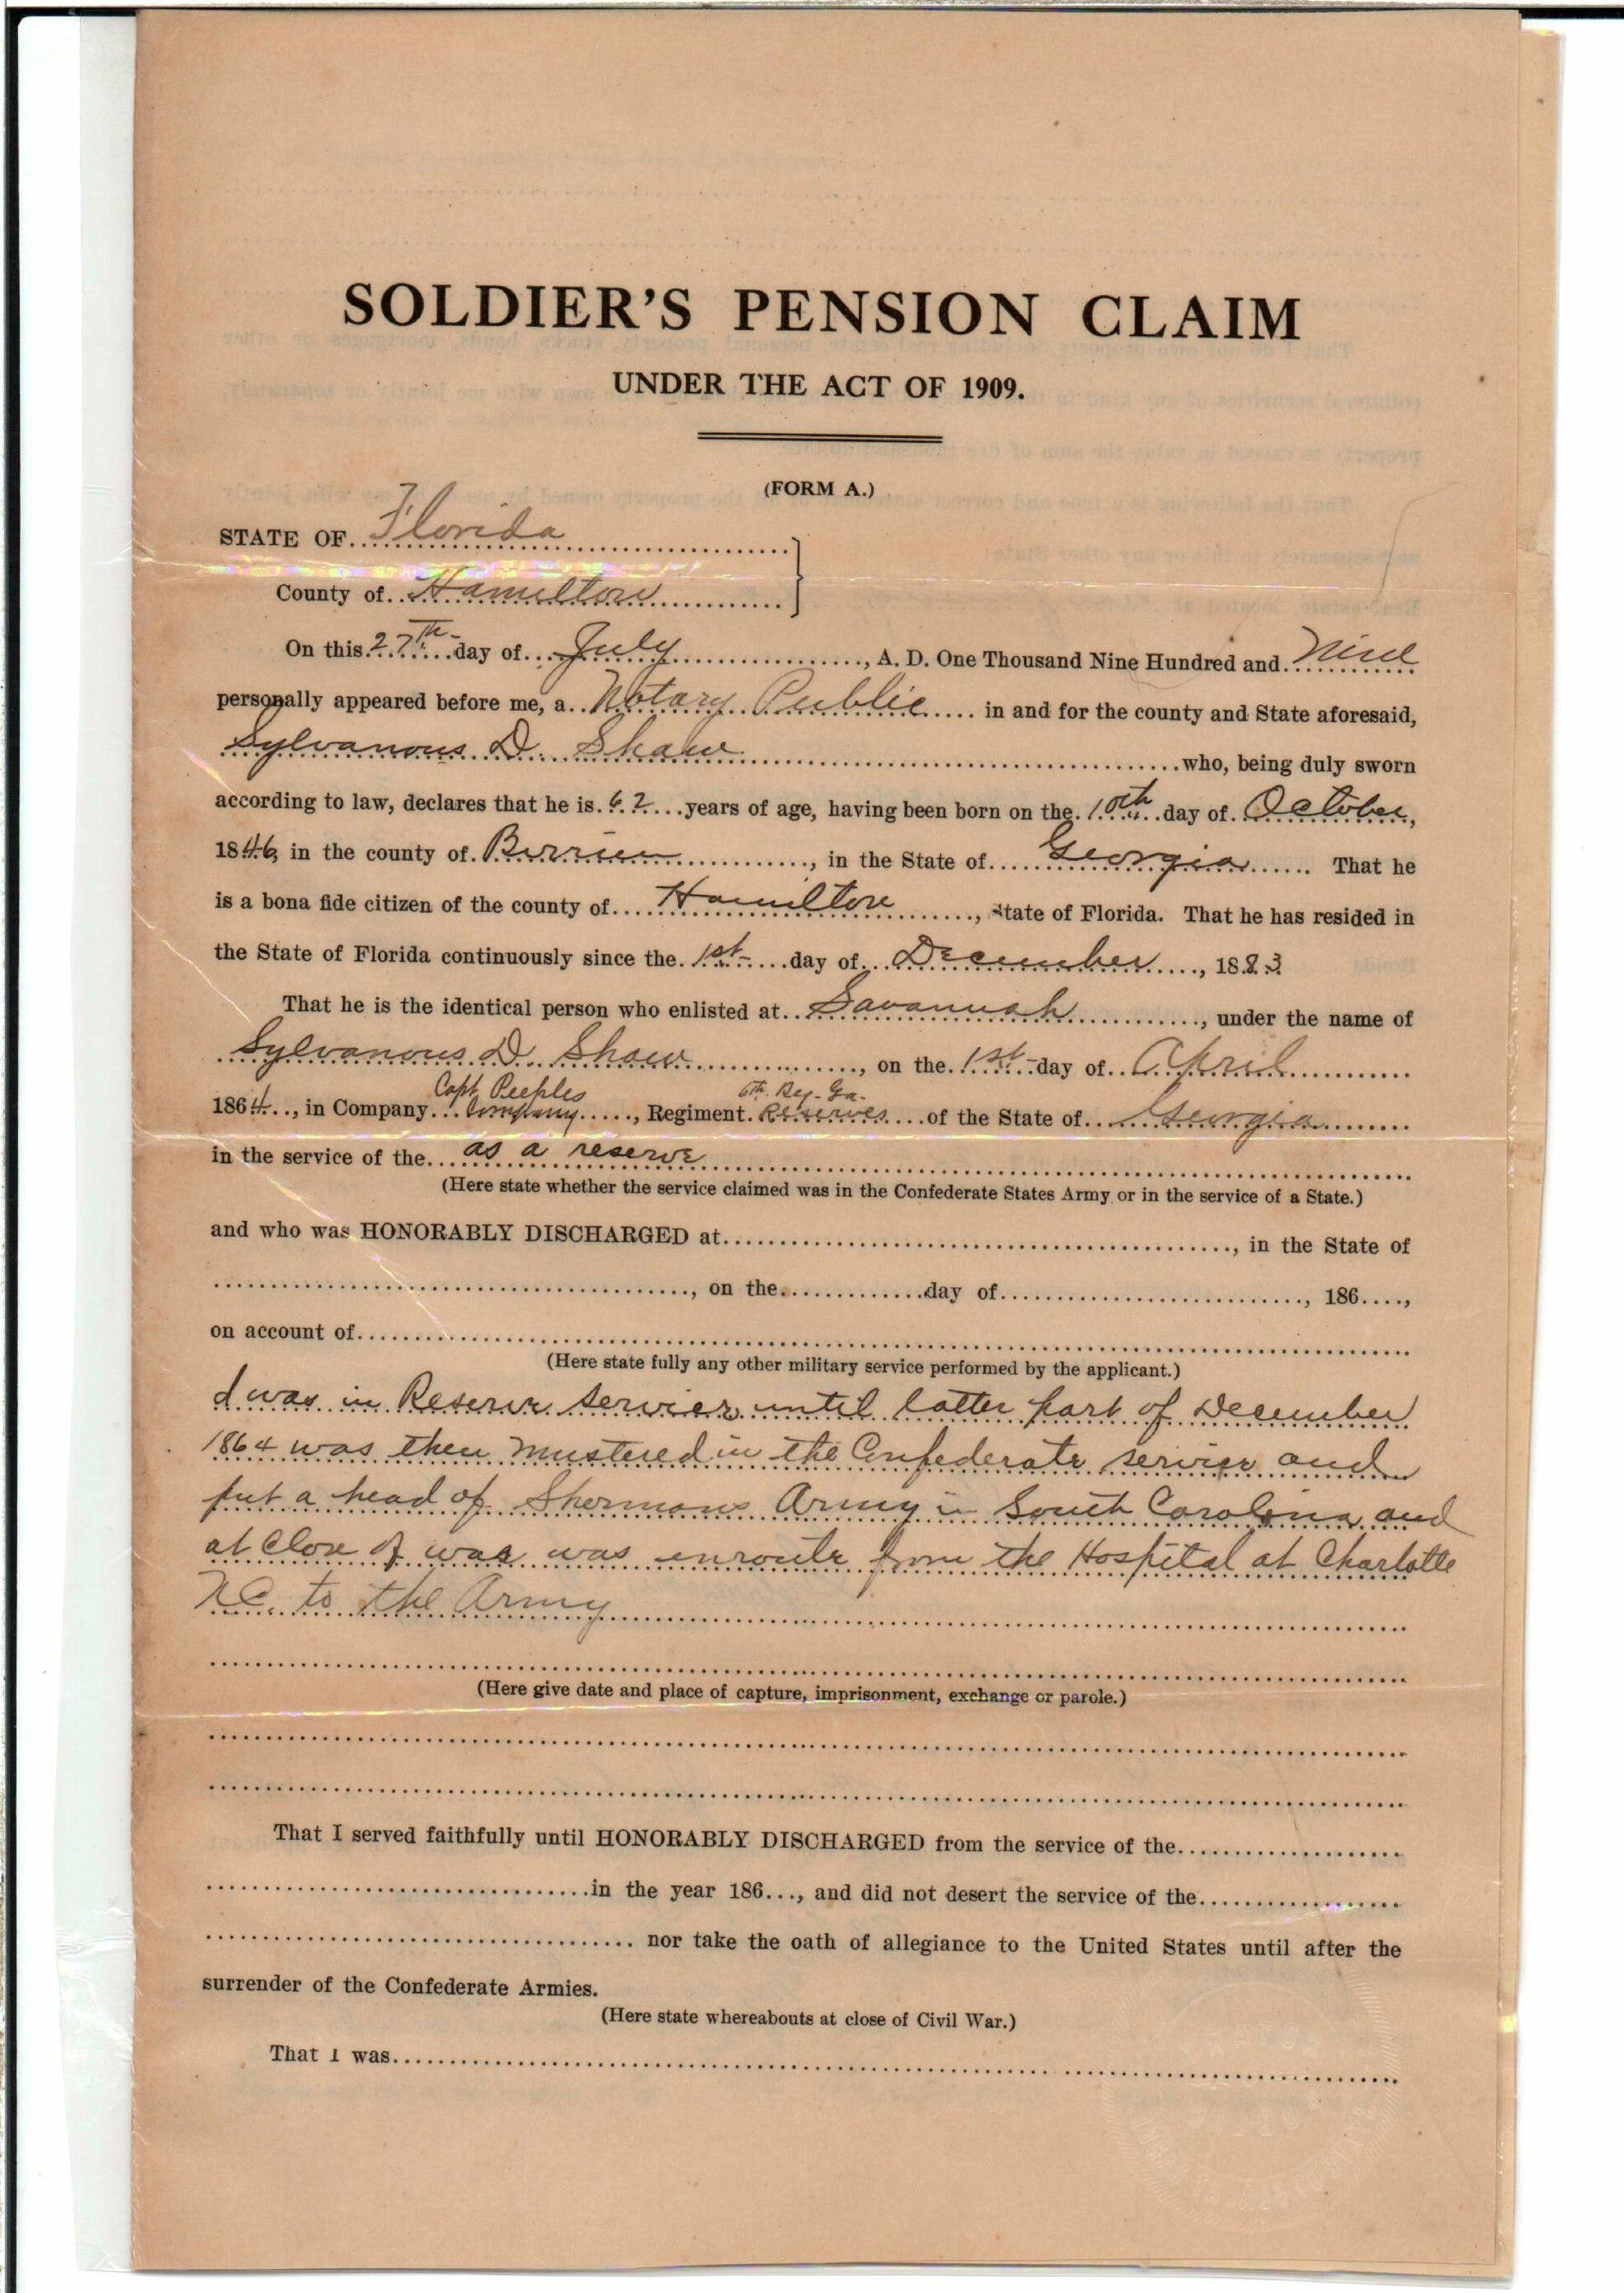 SOLDIER'S PENSION CLAIM
UNDER THE ACT OF 1909.
(FORM A.)
STATE OF Florida
County of Hamilton
On this 27th day of July, A. D. One Thousand Nine Hundred and Nine
personally appeared before me, a Notary Public in and for the county and State aforesaid,
Sylvanous D. Shaw who, being duly sworn
according to law, declares that he is 62 years of age, having been born on the 10th day of October,
1846, in the county of Berrien, in the State of Georgia. That he
is a bona fide citizen of the county of Hamilton, State of Florida. That he has resided in
the State of Florida continuously since the 1st day of December, 1883
That he is the identical person who enlisted at Savannah, under the name of
Sylvanous D. Shaw, on the 1st day of April
1864, in Company Capt Peeples Company, Regiment 6th Reg. Ga. Reserves of the State of Georgia
in the service of the as a reserve
(Here state whether the service claimed was in the Confederate States Army or in the service of a State.)
and who was HONORABLY DISCHARGED at, in the State of
, on the day of, 186,
on account of
(Here state fully any other military service performed by the applicant.)
I was in Reserve service until latter part of December
1864 was then mustered in the Confederate service and
put a head of Shermans Army in South Carolina and
at Close of war was enroute from the Hospital at Charlotte
N.C. to the Army
(Here give date and place of capture, imprisonment, exchange or parole.)
That I served faithfully until HONORABLY DISCHARGED from the service of the
in the year 186, and did not desert the service of the
nor take the oath of allegiance to the United States until after the
surrender of the Confederate Armies.
(Here state whereabouts at close of Civil War.)
That I was